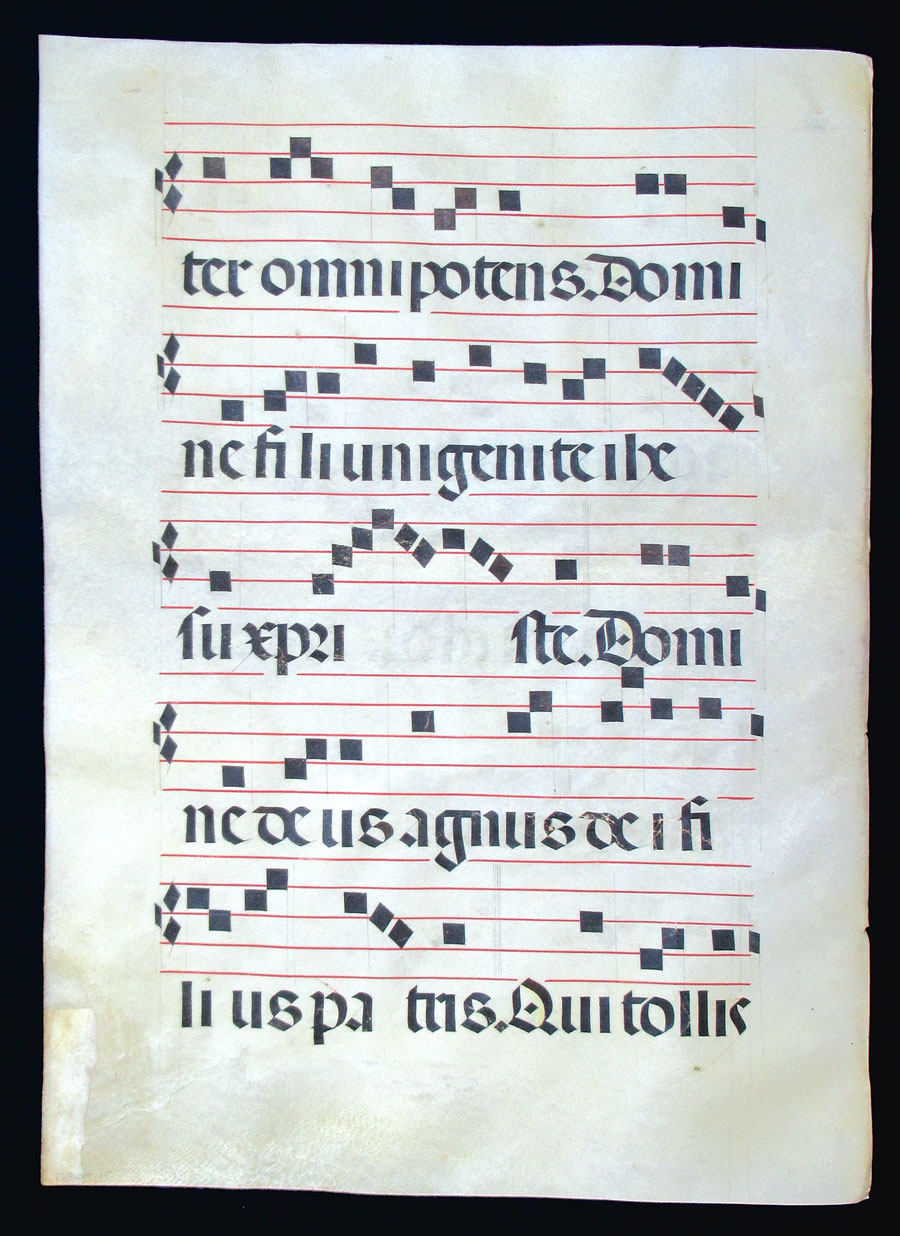 ter omnipotens. Domi
ne fili unigenite ihe
su xpri ste. Domi
ne deus agnus dei fi
lius pa tris. Qui tollis